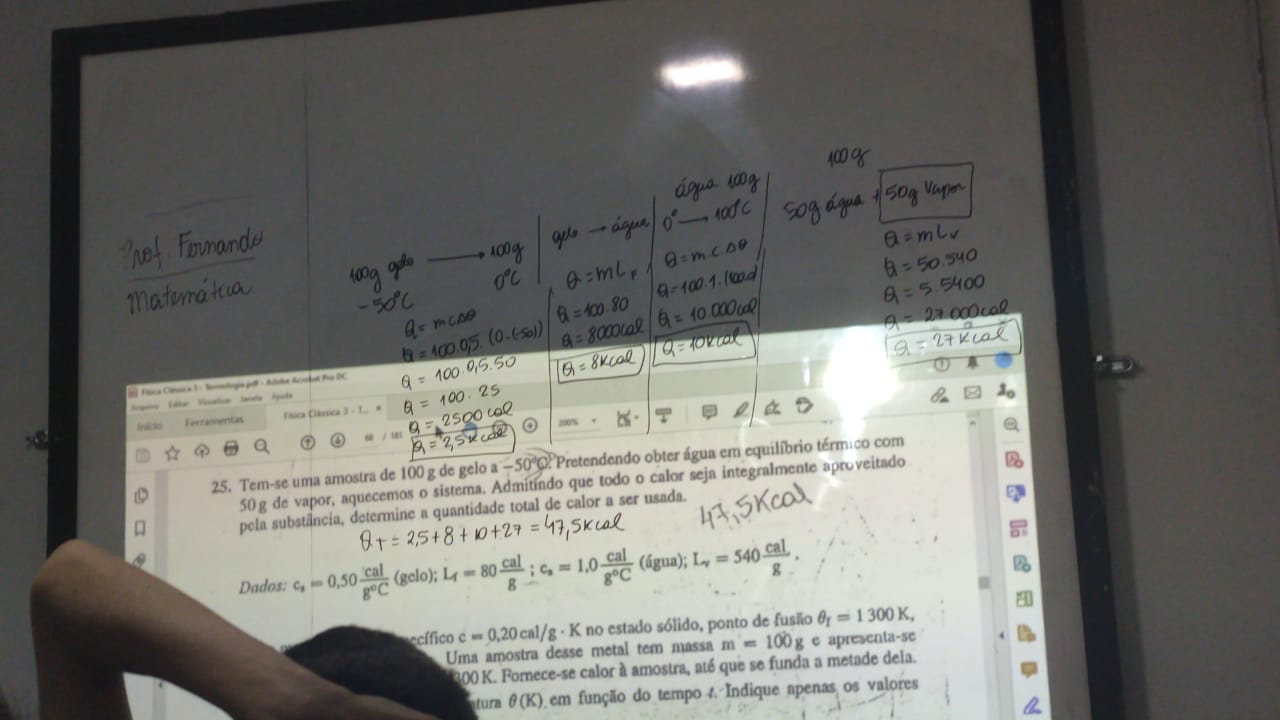 Prof. Fernando
Matemática
100g gelo → 100g
-50°C 0°C
Q = mcΔθ
Q = 100.0,5.(0-(-50))
Q = 100.0,5.50
Q = 100.25
Q = 2500 cal
Q = 2,5Kcal
gelo → água
Q = mL_F
Q = 100.80
Q = 8000cal
Q = 8Kcal
água 100g
0° → 100°C
Q = m.c.Δθ
Q = 10 000cal
Q = 10Kcal
100g
50g água + 50g Vapor
Q = mLv
Q = 50.540
Q = 5.5400
Q = 27.000cal
Q = 27Kcal
Física Clássica 3 - Termologia.pdf - Adobe Acrobat Pro DC
Arquivo Editar Visualizar Janela Ajuda
Início Ferramentas Física Clássica 3 - T... ×
/ 181 200%
25. Tem-se uma amostra de 100 g de gelo a −50°C. Pretendendo obter água em equilíbrio térmico com
50 g de vapor, aquecemos o sistema. Admitindo que todo o calor seja integralmente aproveitado
pela substância, determine a quantidade total de calor a ser usada.
47,5Kcal
QT = 2,5+8+10+27 = 47,5Kcal
Dados: cₛ = 0,50 cal/g°C (gelo); L_f = 80 cal/g ; cₐ = 1,0 cal/g°C (água); L_v = 540 cal/g .
ecífico c = 0,20 cal/g · K no estado sólido, ponto de fusão θ_f = 1 300 K,
Uma amostra desse metal tem massa m = 100 g e apresenta-se
00 K. Fornece-se calor à amostra, até que se funda a metade dela.
tura θ (K) em função do tempo t. Indique apenas os valores